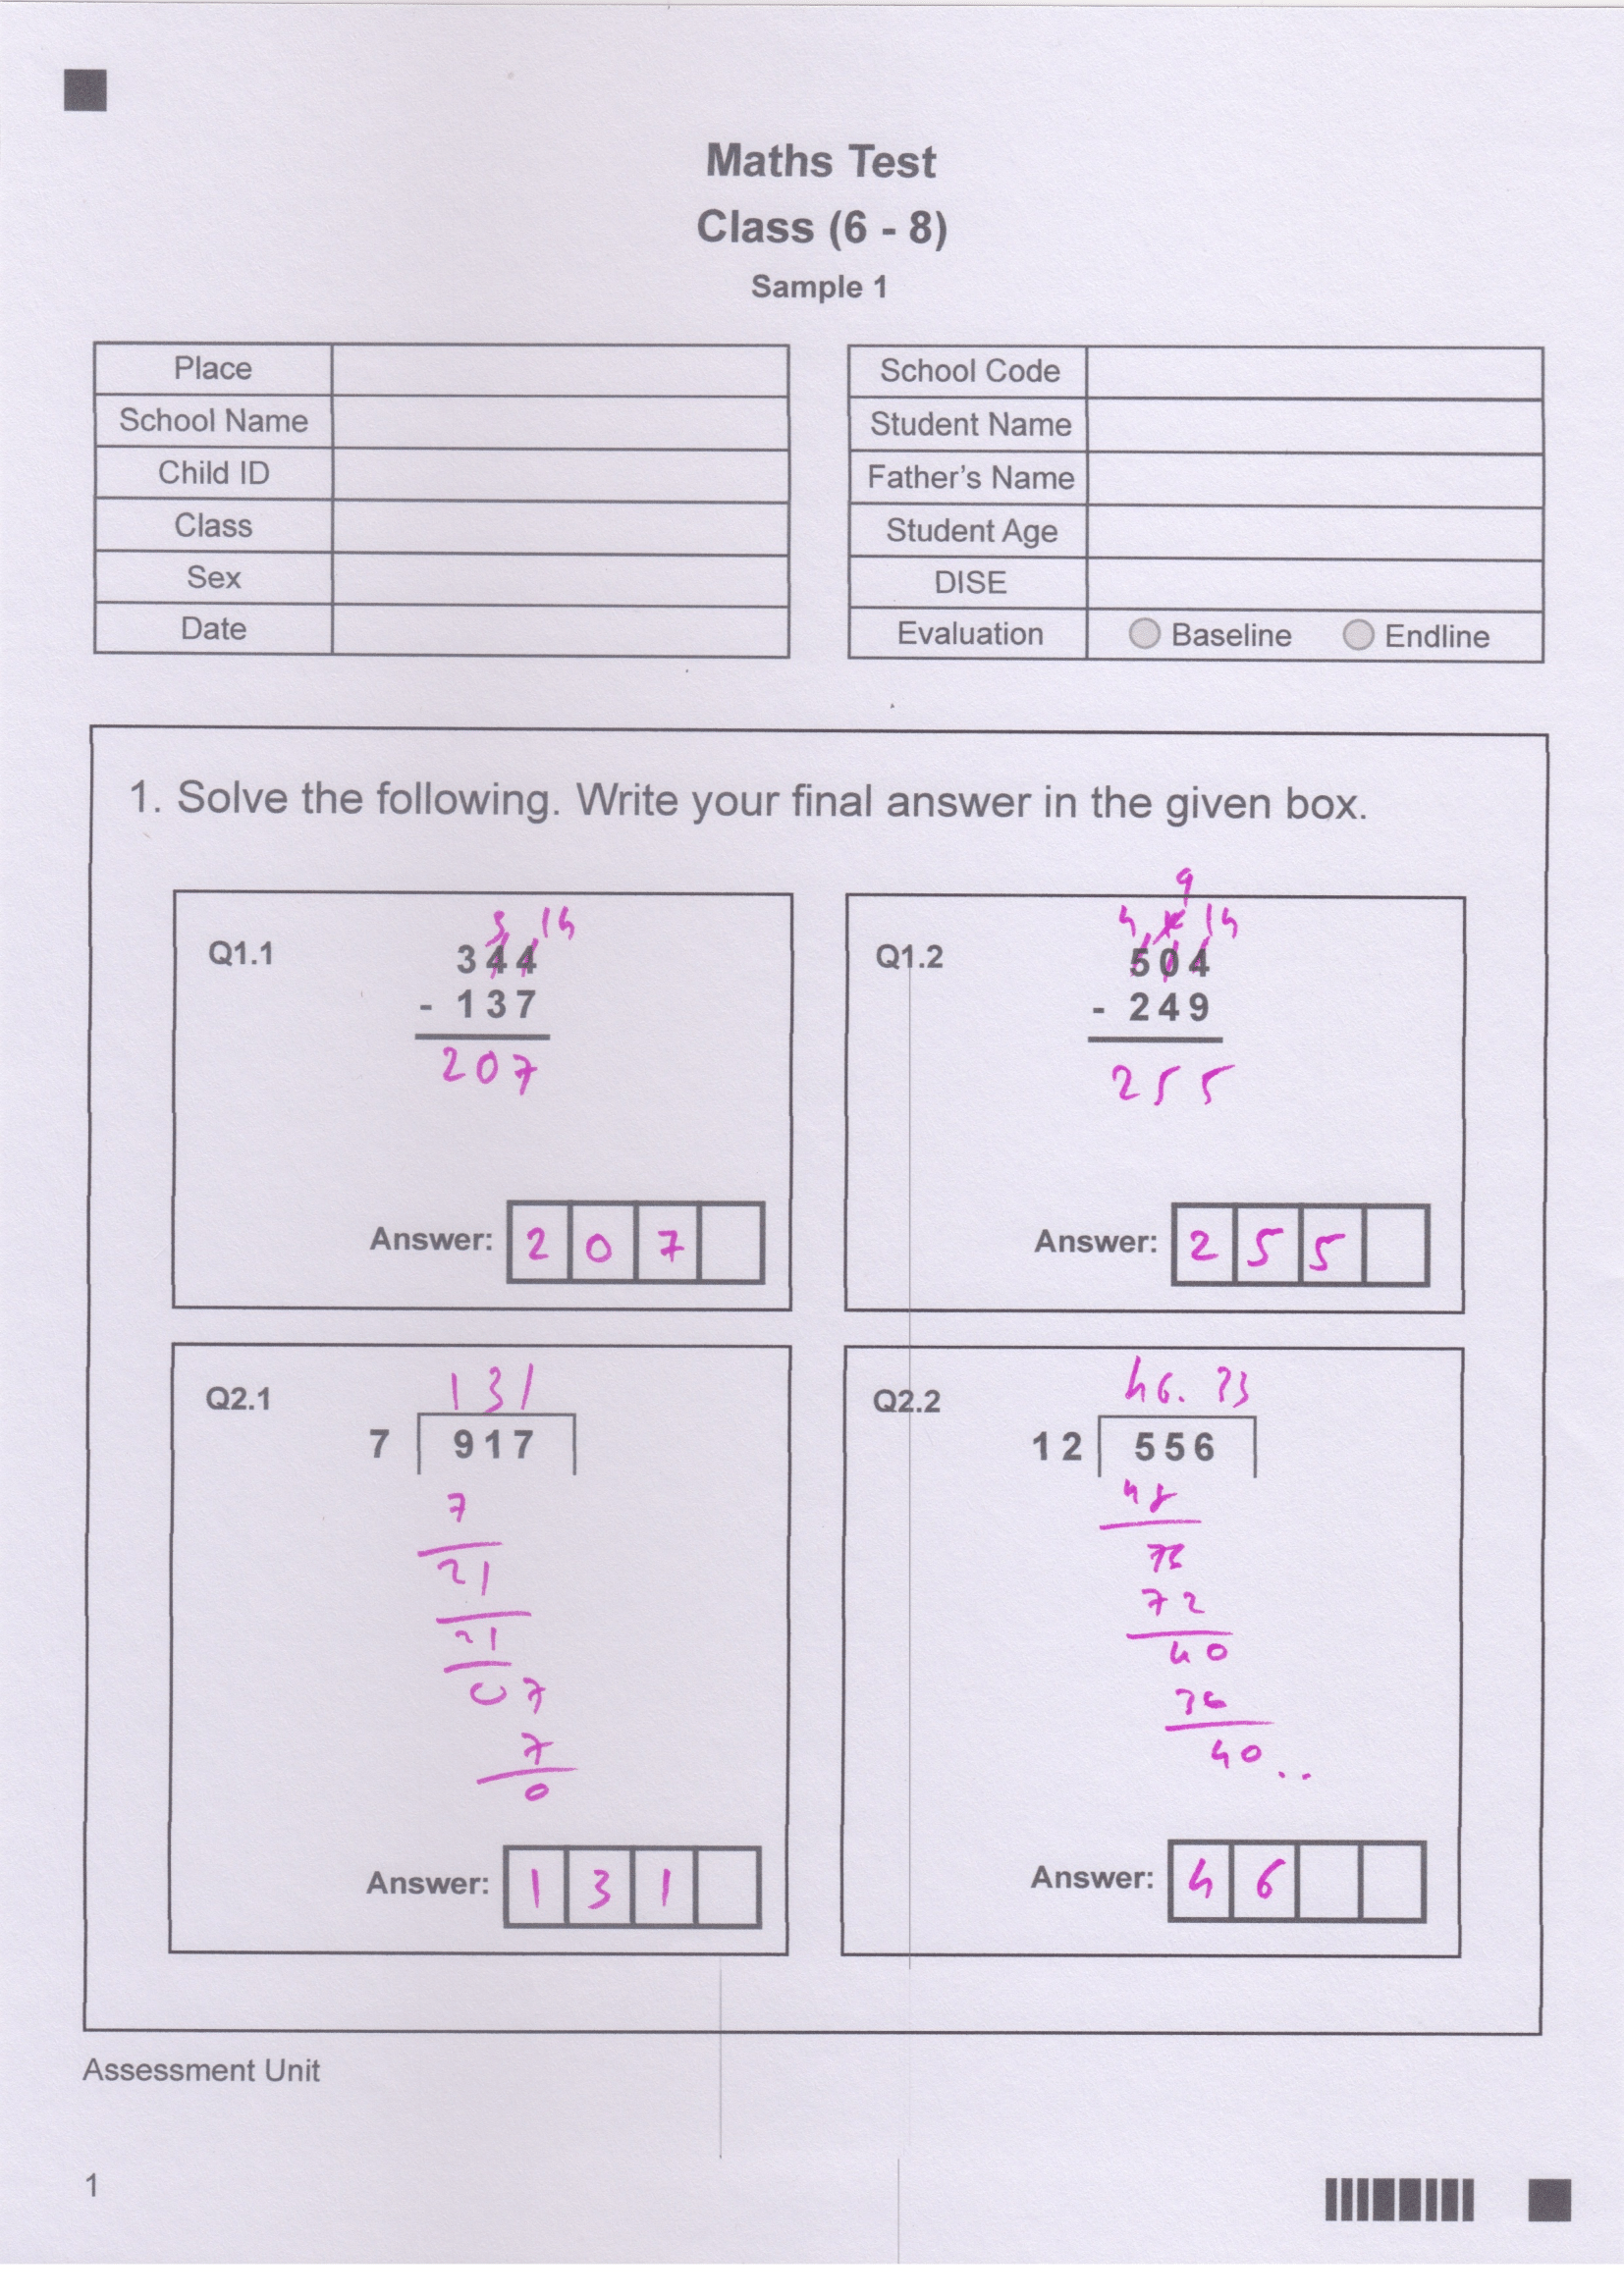 Maths Test
Class (6 - 8)
Sample 1
Place
School Name
Child ID
Class
Sex
Date
School Code
Student Name
Father's Name
Student Age
DISE
Evaluation Baseline Endline
1. Solve the following. Write your final answer in the given box.
Q1.1
3 14
344
- 137
207
Answer: 2 0 7
Q1.2
9
4 14
504
- 249
255
Answer: 2 5 5
Q2.1
131
7 917
7
21
21
07
7
0
Answer: 1 3 1
Q2.2
46.33
12 556
48
76
72
40
36
40 ..
Answer: 4 6
Assessment Unit
1